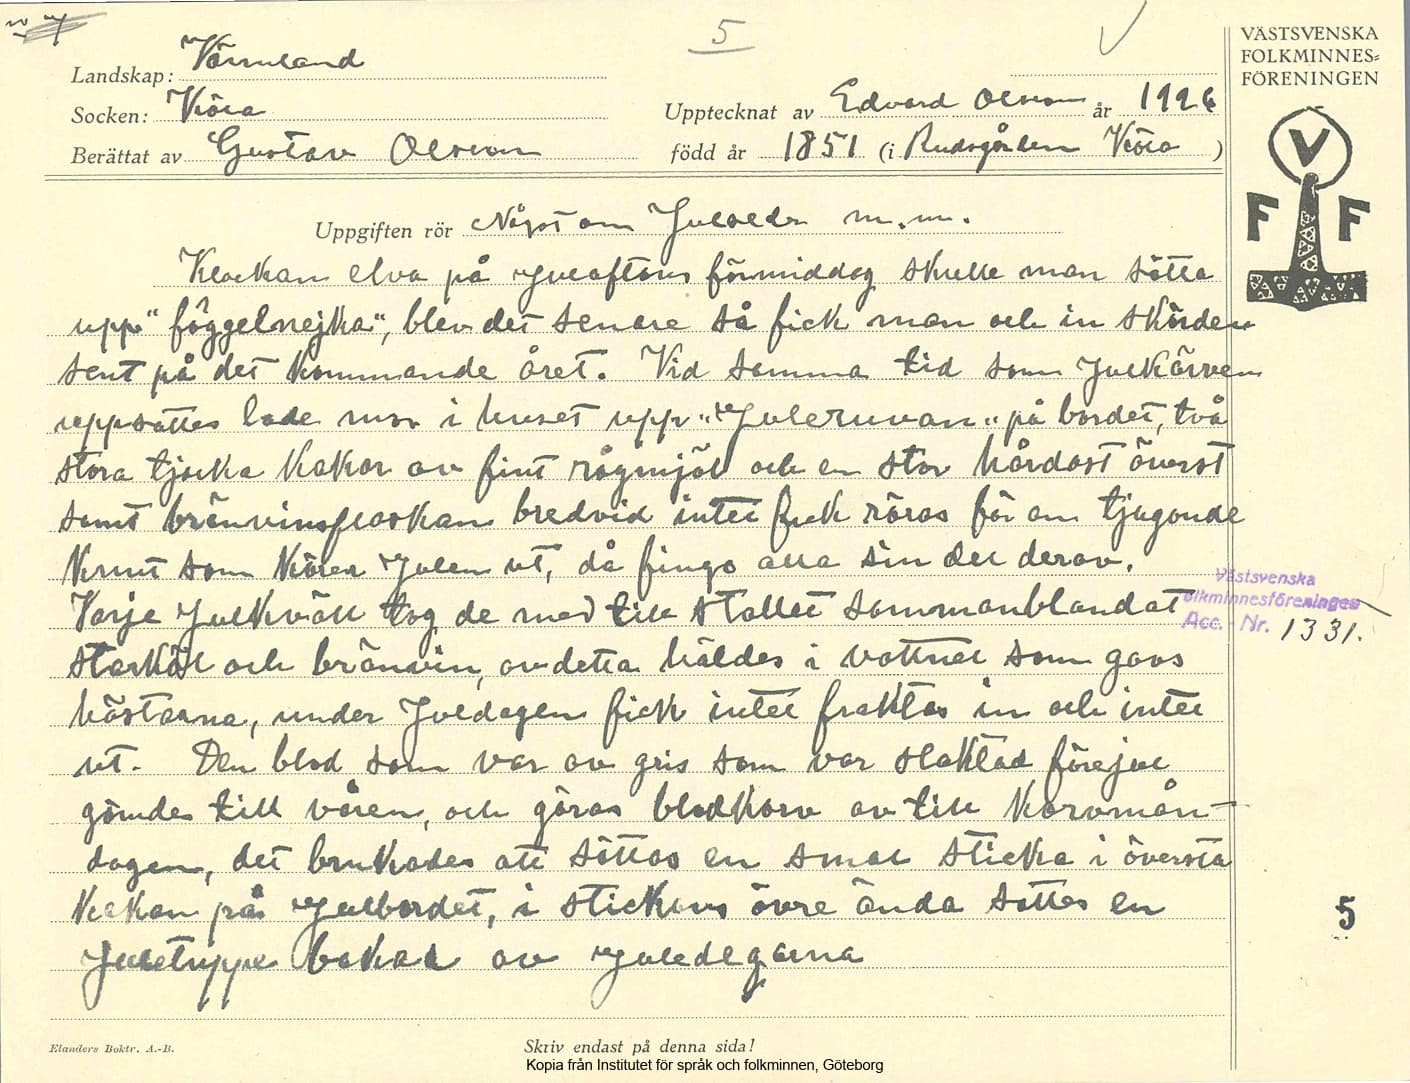 5
Landskap: Värmland
VÄSTSVENSKA
FOLKMINNES=
FÖRENINGEN
Socken: Köla
Upptecknat av Edvard Olsson år 1926
Berättat av Gustav Olsson
född år 1851 (i Rudsgården Köla )
V
F F
Uppgiften rör Något om Julseder m.m.
Klockan elva på Julaftons förmiddag skulle man sätta
upp "föggelnejka", blev det senare så fick man och in skörden
sent på det kommande året. Vid samma tid som Julkärven
uppsattes lade mor i huset upp "Juleruvan" på bordet, två
stora tjocka kakor av fint rågmjöl och en stor hårdost överst
samt brännvinsflaskan bredvid intet fick röras för än tjugonde
Knut som körer Julen ut, då fingo alla sin del derav.
Varje Julkväll tog de med till stallet sammanblandat
starköl och bränvin, av detta häldes i vattnet som gavs
hästarna, under Juldagen fick intet fraktas in och intet
ut. Den blod som var av gris som var slaktad förejul
gömdes till våren, och göras blodkorv av till Korvmån-
dagen, det brukades att sättas en smal sticka i översta
kakan på Julbordet, i stickans övre ända sattes en
Juletupp bakad av juledegarna
Västsvenska
folkminnesföreningen
Acc. - Nr. 1331.
5
Elanders Boktr. A.-B.
Skriv endast på denna sida!
Kopia från Institutet för språk och folkminnen, Göteborg